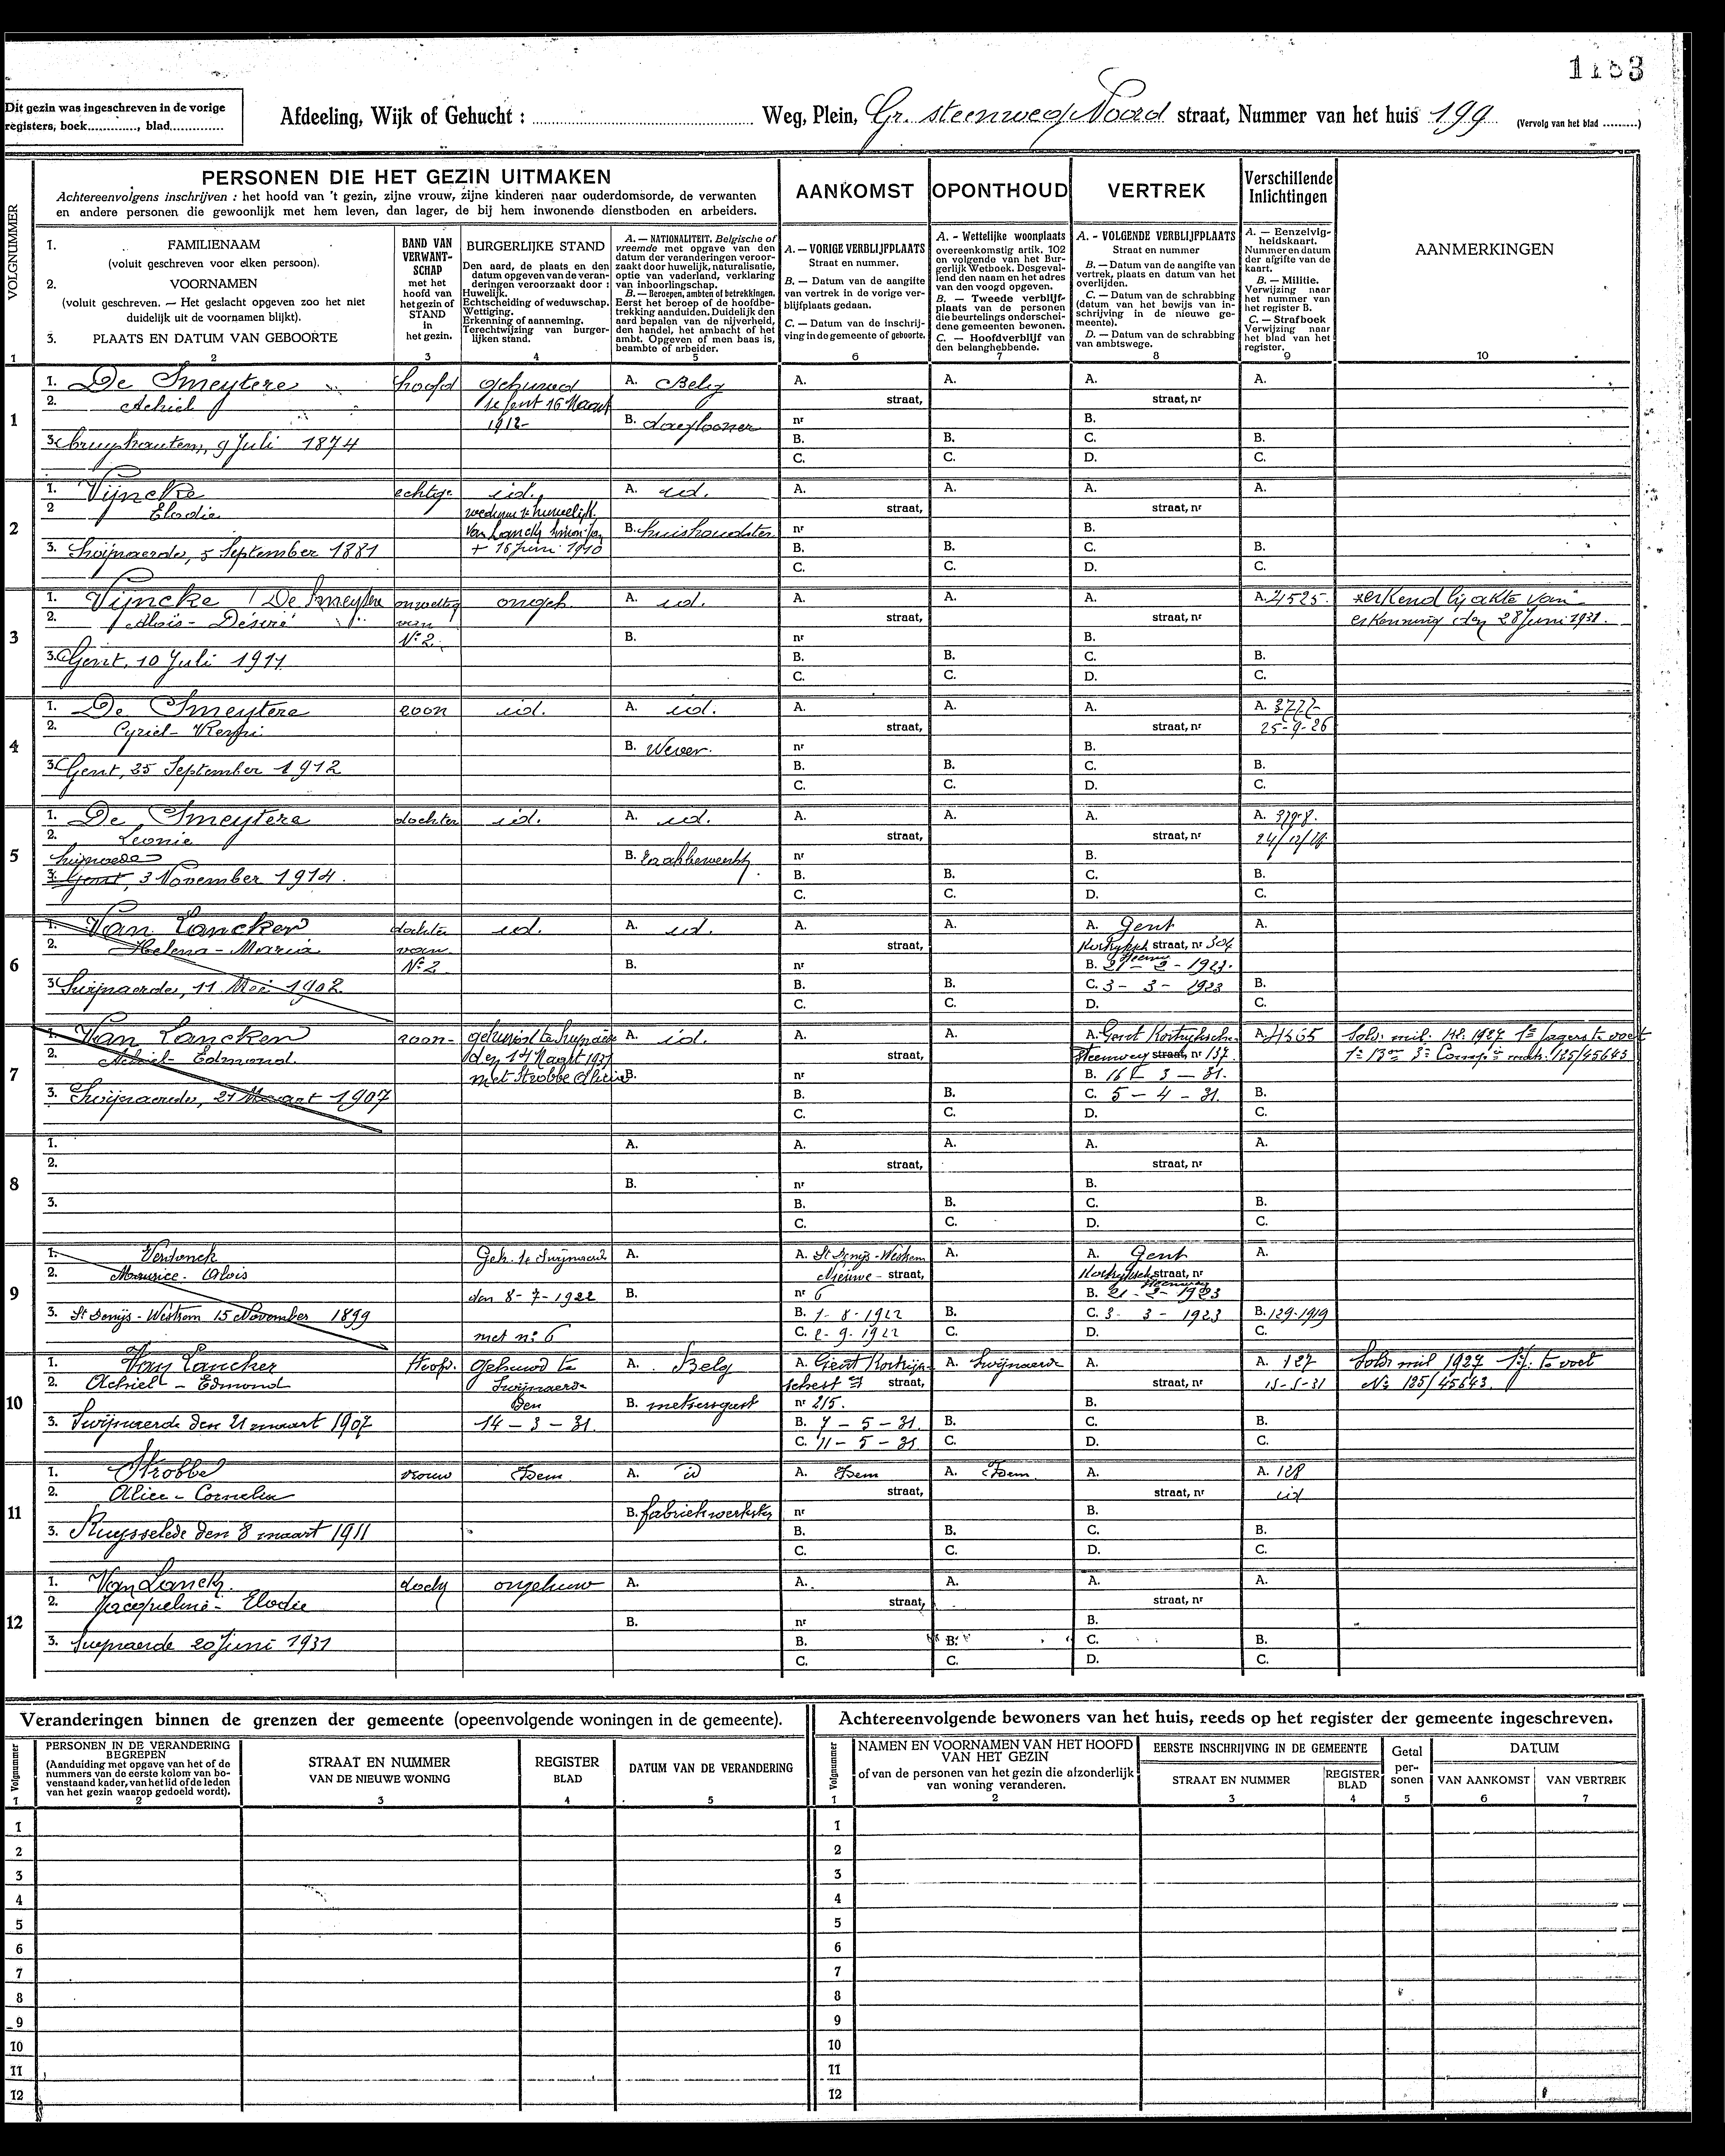 1183
Dit gezin was ingeschreven in de vorige
registers, boek............, blad..............
Afdeeling, Wijk of Gehucht : ........ Weg, Plein, Gr. steenweg Noord straat, Nummer van het huis 199 (Vervolg van het blad .........)
VOLGNUMMER
PERSONEN DIE HET GEZIN UITMAKEN
Achtereenvolgens inschrijven : het hoofd van 't gezin, zijne vrouw, zijne kinderen naar ouderdomsorde, de verwanten
en andere personen die gewoonlijk met hem leven, dan lager, de bij hem inwonende dienstboden en arbeiders.
AANKOMST
OPONTHOUD
VERTREK
Verschillende
Inlichtingen
AANMERKINGEN
1. FAMILIENAAM
(voluit geschreven voor elken persoon).
2. VOORNAMEN
(voluit geschreven. — Het geslacht opgeven zoo het niet
duidelijk uit de voornamen blijkt).
3. PLAATS EN DATUM VAN GEBOORTE
BAND VAN
VERWANT-
SCHAP
met het
hoofd van
het gezin of
STAND
in
het gezin.
BURGERLIJKE STAND
Den aard, de plaats en den
datum opgeven van de veran-
deringen veroorzaakt door :
Huwelijk.
Echtscheiding of weduwschap.
Wettiging.
Erkenning of aanneming.
Terechtwijzing van burger-
lijken stand.
A. — NATIONALITEIT. Belgische of
vreemde met opgave van den
datum der veranderingen veroor-
zaakt door huwelijk, naturalisatie,
optie van vaderland, verklaring
van inboorlingschap.
B. — Beroepen, ambten of betrekkingen.
Eerst het beroep of de hoofdbe-
trekking aanduiden. Duidelijk den
aard bepalen van de nijverheid,
den handel, het ambacht of het
ambt. Opgeven of men baas is,
beambte of arbeider.
A. — VORIGE VERBLIJFPLAATS
Straat en nummer.
B. — Datum van de aangifte
van vertrek in de vorige ver-
blijfplaats gedaan.
C. — Datum van de inschrij-
ving in de gemeente of geboorte.
A. - Wettelijke woonplaats
overeenkomstig artik. 102
en volgende van het Bur-
gerlijk Wetboek. Desgeval-
lend den naam en het adres
van den voogd opgeven.
B. — Tweede verblijf-
plaats van de personen
die beurtelings onderschei-
dene gemeenten bewonen.
C. — Hoofdverblijf van
den belanghebbende.
A. - VOLGENDE VERBLIJFPLAATS
Straat en nummer
B. — Datum van de aangifte van
vertrek, plaats en datum van het
overlijden.
C. — Datum van de schrabbing
(datum van het bewijs van in-
schrijving in de nieuwe ge-
meente).
D. — Datum van de schrabbing
van ambtswege.
A. — Eenzelvig-
heidskaart.
Nummer en datum
der afgifte van de
kaart.
B. — Militie.
Verwijzing naar
het nummer van
het register B.
C. — Strafboek
Verwijzing naar
het blad van het
register.
1 2 3 4 5 6 7 8 9 10
1
1. De Smeytere hoofd gehuwd A. Belg A. A. A. A.
2. Achiel te Gent 16 Maart straat, straat, nr
1912- B. daglooner nr B.
3. Cruyshautem, 9 Juli 1874 B. B. C. B.
C. C. D. C.
2
1. Vijncke echtge. id. A. id. A. A. A. A.
2 Elodie weduwe straat, straat, nr
B. huishoudster nr B.
3. Swijnaerde, 5 September 1881 + 16 Juni 1910 B. B. C. B.
C. C. D. C.
3
1. Vijncke / De Smeytere onwettig ongeh. A. id. A. A. A. A. 4525 erkend bij akte van
2. Alois - Désiré van straat, straat, nr erkenning den 28 Juni 1931.
N° 2 B. nr B.
3. Gent, 10 Juli 1911 B. B. C. B.
C. C. D. C.
4
1. De Smeytere zoon id. A. id. A. A. A. A. 3777
2. Cyriel - Henri straat, straat, nr 25-9-26
B. Wever. nr B.
3. Gent, 25 September 1912 B. B. C. B.
C. C. D. C.
5
1. De Smeytere dochter id. A. id. A. A. A. A.
2. Leonie straat, straat, nr
B. nr B.
3. Gent, 3 November 1914. B. B. C. B.
C. C. D. C.
6
1. Van Lancker dochter id. A. id. A. A. A. Gent A.
2. Helena - Maria van straat, straat, nr 304
N° 2 B. nr B. 21 - 2 - 1923.
3 Swijnaerde, 11 Mei 1902 B. B. C. 3 - 3 - 1923 B.
C. C. D. C.
7
1. Van Lancker zoon- A. id. A. A. A. Gent Kortrijksche A. 4565
2. Achiel - Edmond. den 14 Maart 1931 straat, Steenweg straat, nr 137
met Strobbe Alice B. nr B. 16 - 3 - 31.
3. Swijnaerde, 21 Maart 1907 B. B. C. 5 - 4 - 31. B.
C. C. D. C.
8
1. A. A. A. A. A.
2. straat, straat, nr
B. nr B.
3. B. B. C. B.
C. C. D. C.
9
1. Verdonck A. A. St Denijs-Westrem A. A. Gent A.
2. Maurice - Alois Nieuwe - straat, straat, nr
den 8-7-1922 B. nr 6 B. 21-2-1923
3. St Denijs - Westrem 15 November 1899 B. 1-8-1922 B. C. 3- 3 - 1923 B. 129-1919
met n° 6 C. 2-9-1922 C. D. C.
10
1. Van Lancker Hoofd. gehuwd te A. Belg A. Gent A. Swijnaerde A. A. 127
2. Achiel - Edmond Swijnaerde straat, straat, nr 15-5-31 N° 125/45643.
den B. metsersgast nr 215. B.
3. Swijnaerde den 21 maart 1907 14 - 3 - 31. B. 7 - 5 - 31 B. C. B.
C. 11 - 5 - 31 C. D. C.
11
1. Strobbe vrouw Idem A. id A. Idem A. Idem A. A. 128
2. Alice - Cornelia straat, straat, nr id
B. fabriekwerkster nr B.
3. Ruysselede den 8 maart 1911 B. B. C. B.
C. C. D. C.
12
1. Van Lanck. doch ongehuw A. A. A. A. A.
2. Jacqueline - Elodie straat, straat, nr
B. nr B.
3. Swijnaerde 20 Juni 1931 B. B. C. B.
C. C. D. C.
Veranderingen binnen de grenzen der gemeente (opeenvolgende woningen in de gemeente).
Volgnummer
PERSONEN IN DE VERANDERING
BEGREPEN
(Aanduiding met opgave van het of de
nummers van de eerste kolom van bo-
venstaand kader, van het lid of de leden
van het gezin waarop gedoeld wordt).
STRAAT EN NUMMER
VAN DE NIEUWE WONING
REGISTER
BLAD
DATUM VAN DE VERANDERING
1 2 3 4 5
1
2
3
4
5
6
7
8
9
10
11
12
Achtereenvolgende bewoners van het huis, reeds op het register der gemeente ingeschreven.
Volgnummer
NAMEN EN VOORNAMEN VAN HET HOOFD
VAN HET GEZIN
of van de personen van het gezin die afzonderlijk
van woning veranderen.
EERSTE INSCHRIJVING IN DE GEMEENTE
STRAAT EN NUMMER
REGISTER
BLAD
Getal
per-
sonen
DATUM
VAN AANKOMST
VAN VERTREK
1 2 3 4 5 6 7
1
2
3
4
5
6
7
8
9
10
11
12